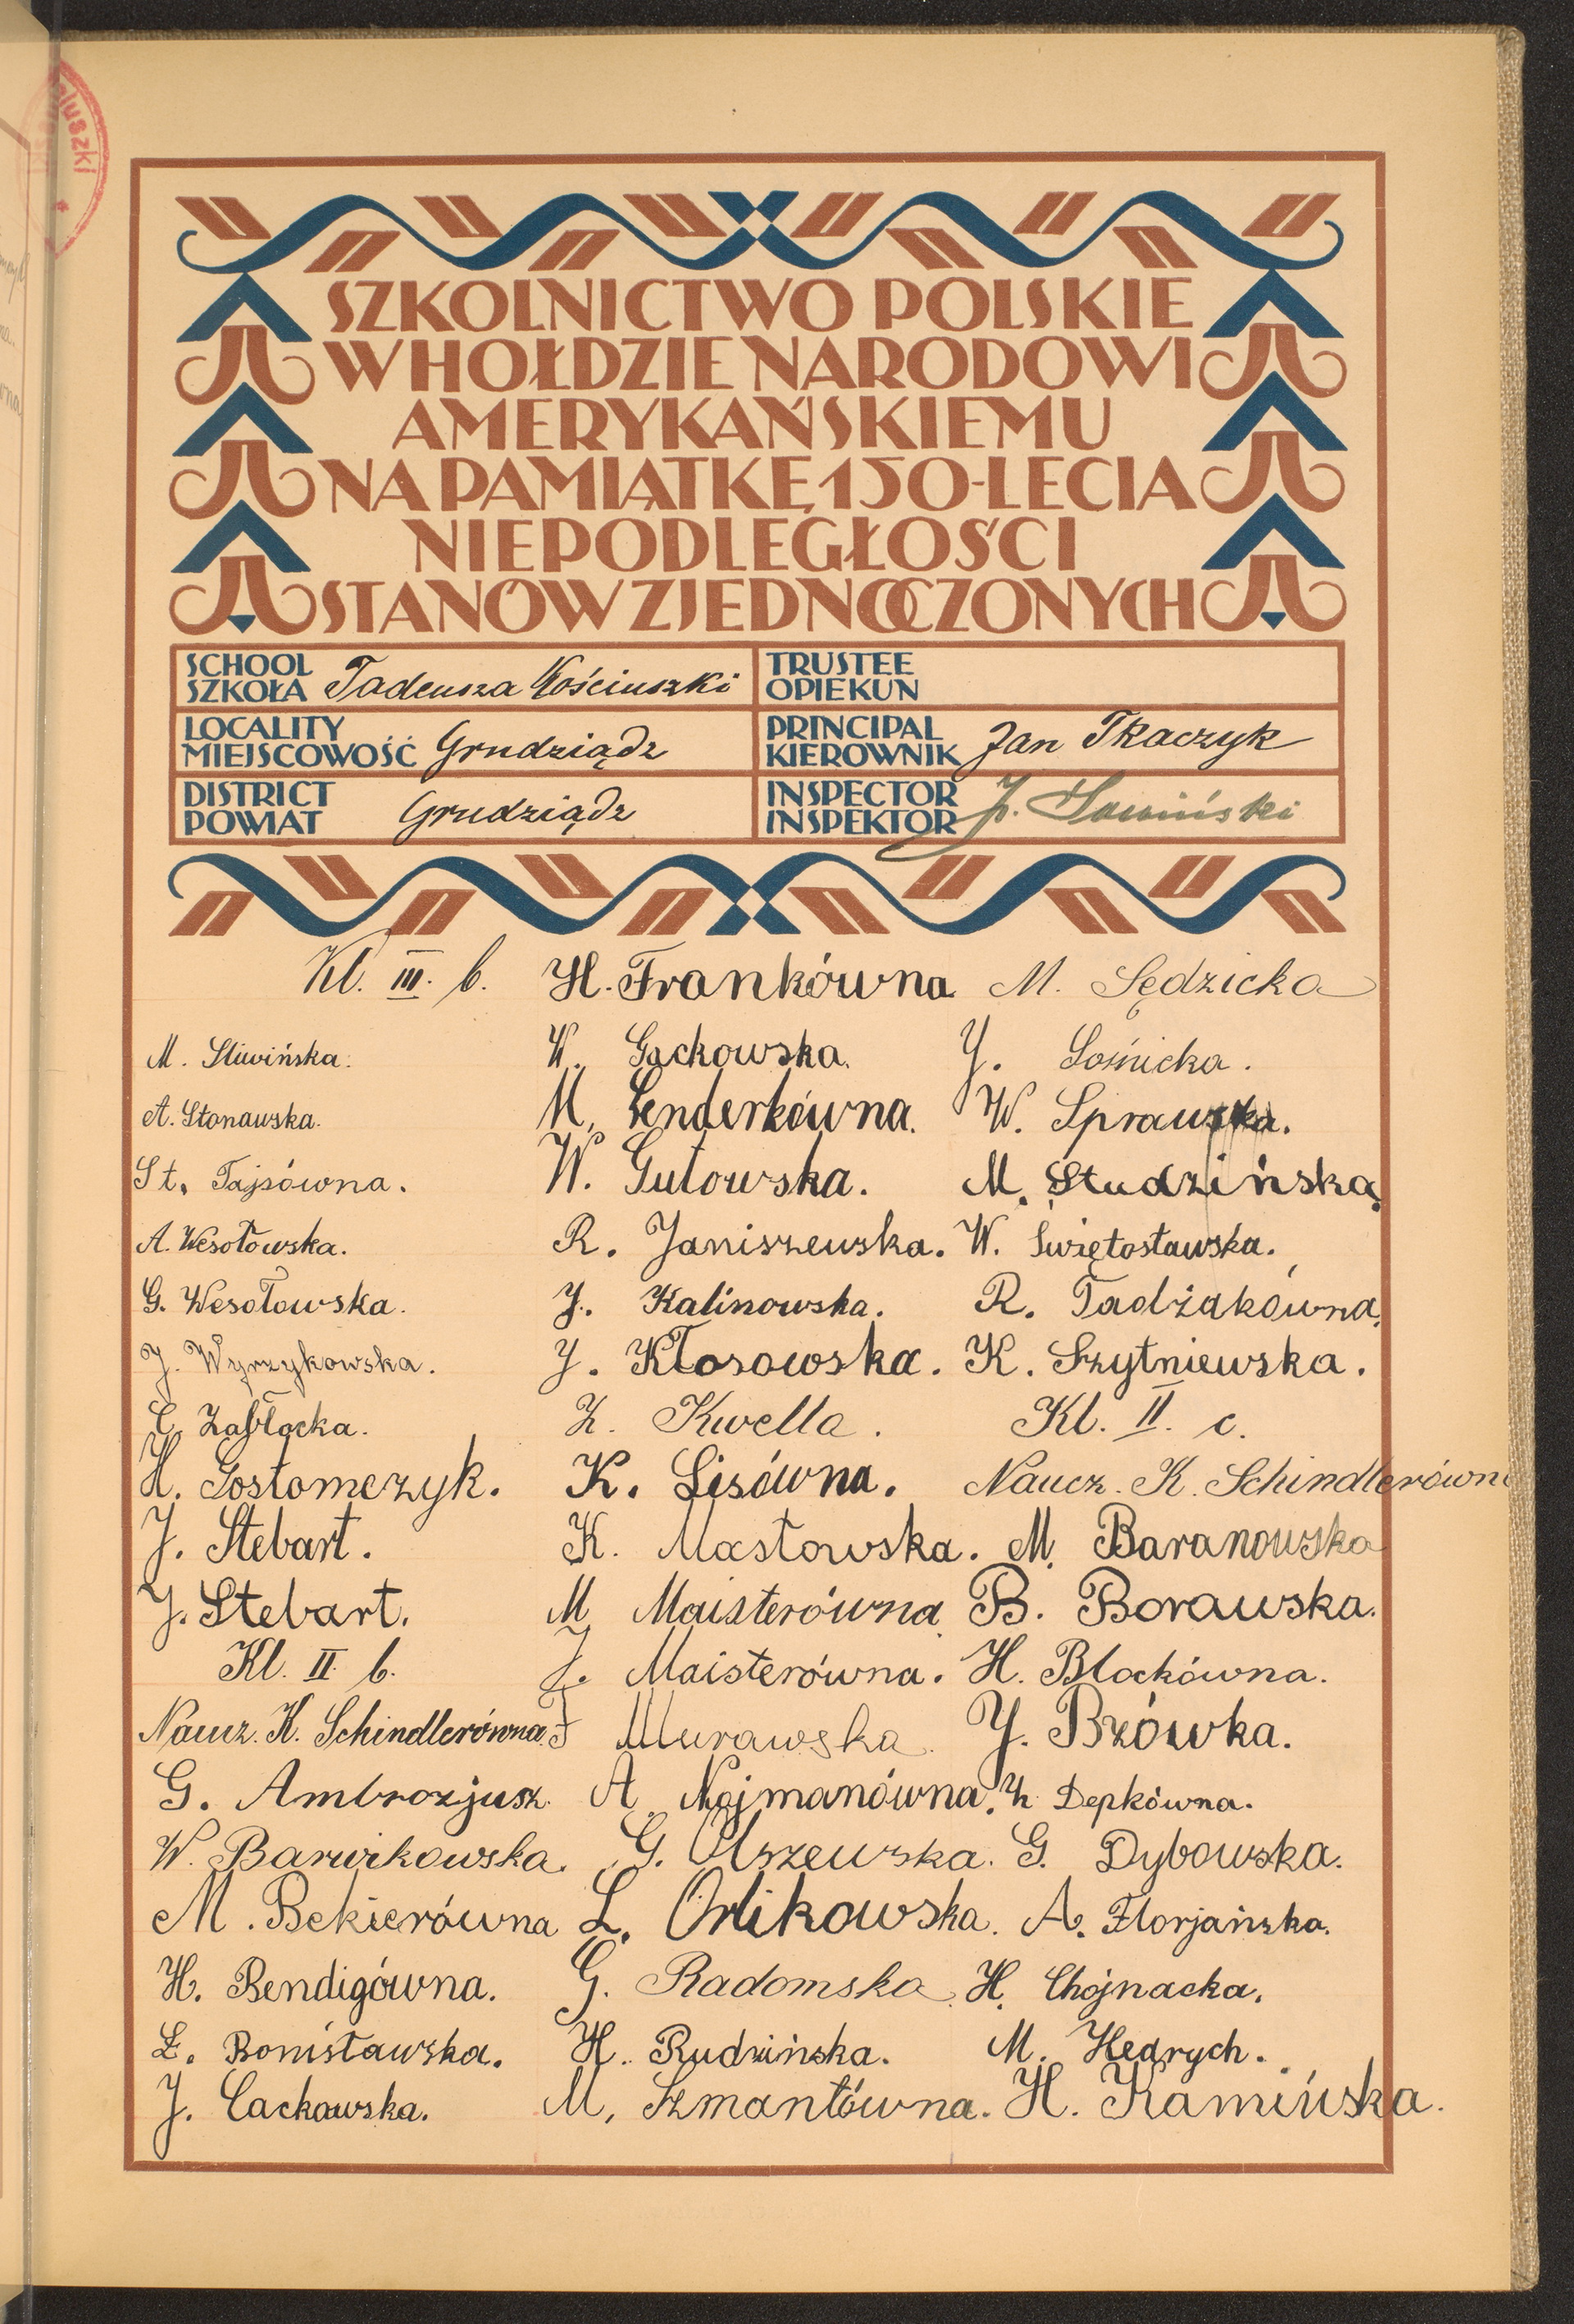 SZKOLNICTWO POLSKIE
W HOŁDZIE NARODOWI
AMERYKAŃSKIEMU
NA PAMIĄTKĘ 150-LECIA
NIEPODLEGŁOŚCI
STANÓW ZJEDNOCZONYCH
SCHOOL
SZKOŁA Tadeusza Kościuszki
TRUSTEE
OPIEKUN
LOCALITY
MIEJSCOWOŚĆ Grudziądz
PRINCIPAL
KIEROWNIK Jan Tkaczyk
DISTRICT
POWIAT Grudziądz
INSPECTOR
INSPEKTOR
Kl. III. b.
M. Sliwińska.
A. Stonawska.
St. Tajsówna.
A. Wesołowska.
G. Wesołowska.
J. Wyrzykowska.
C. Zabłocka.
H. Gostomczyk.
J. Stebart.
J. Stebart.
Kl. II b.
Naucz. K. Schindlerówna.
G. Ambrozjusz.
W. Barwikowska.
M. Bekierówna
H. Bendigówna.
Ł. Bonisławska.
J. Cackowska.
H. Frankówna
W. Gackowska.
M. Genderkówna.
W. Gutowska.
R. Janiszewska.
J. Kalinowska.
J. Kłosowska.
Z. Kwella.
K. Lisówna.
K. Masłowska.
M. Maisterówna
J. Maisterówna.
F Murawska.
A. Najmanówna.
G. Olszewska.
L. Orlikowska.
G. Radomska.
H. Rudzińska.
M. Szmantówna.
M. Sędzicka
J. Sośnicka.
W. Sprawska.
M. Studzińska.
W. Świętosławska.
R. Tadżakówna.
K. Szytniewska.
Kl. II. c.
Naucz. K. Schindlerówna
M. Baranowska
B. Borawska.
H. Blockówna.
J. Bzówka.
Z. Depkówna.
G. Dybowska.
A. Florjańska.
H. Chojnacka.
M. Hedrych.
H. Kamińska.